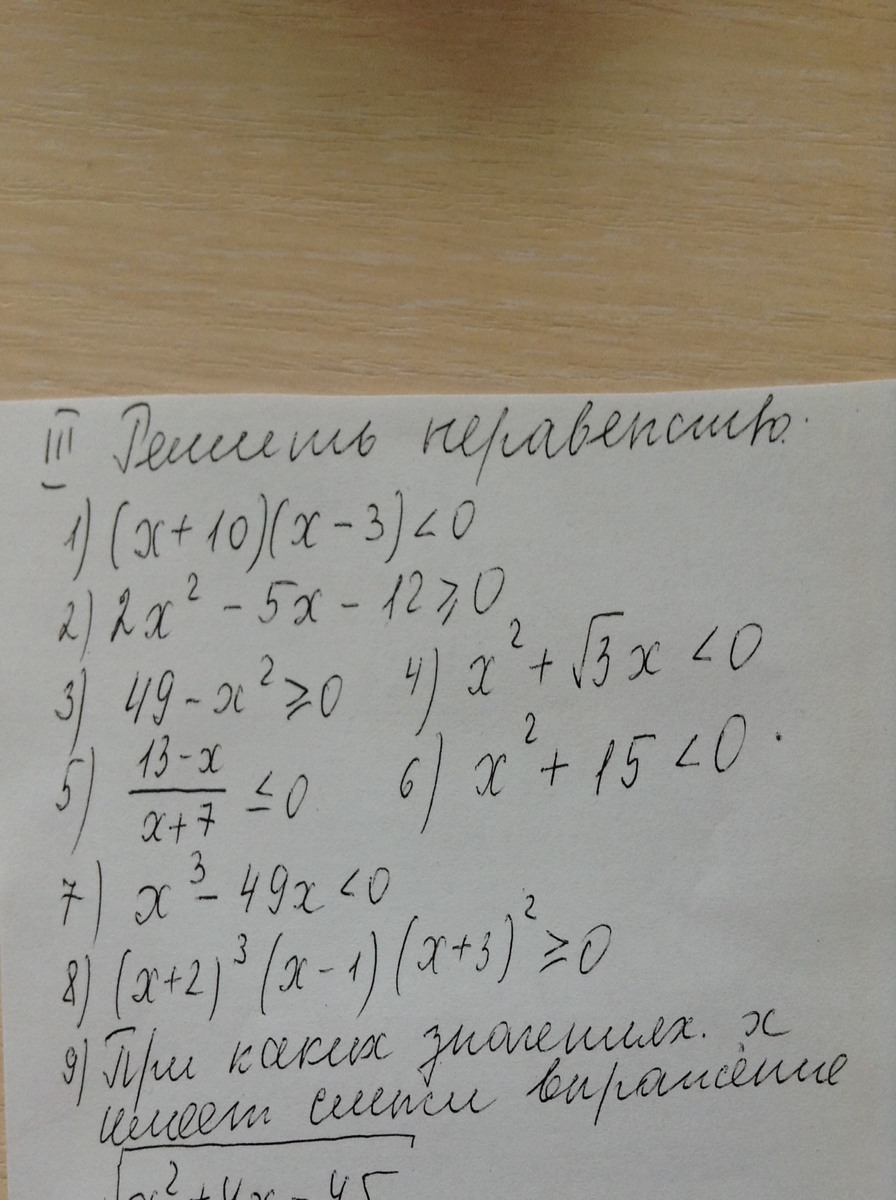 III Решить неравенство.
1) (x+10)(x-3)<0
2) 2x² - 5x - 12 ⩾ 0
3) 49 - x² ⩾ 0 4) x² + √3x < 0
5) (13-x)/(x+7) ≤ 0 6) x² + 15 < 0.
7) x³ - 49x < 0
8) (x+2)³ (x-1) (x+3)² ⩾ 0
9) При каких значениях x
имеет смысл выражение
√x²+4x-45